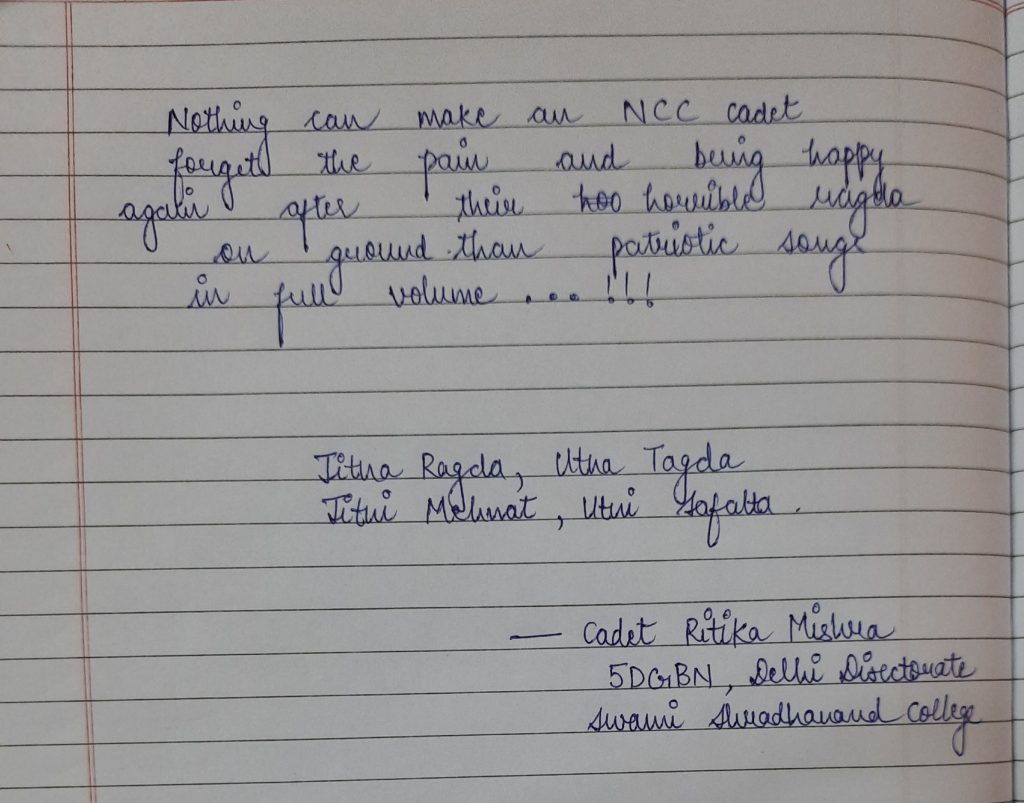 Nothing can make an NCC cadet
forget the pain and being happy
again after their too horrible ragda
on ground than patriotic songs
in full volume ... !!!
Jitna Ragda, Utna Tagda
Jitni Mehnat, Utni Safalta.
— Cadet Ritika Mishra
5DGBN, Delhi Disectorate
Swami Shradhanand College